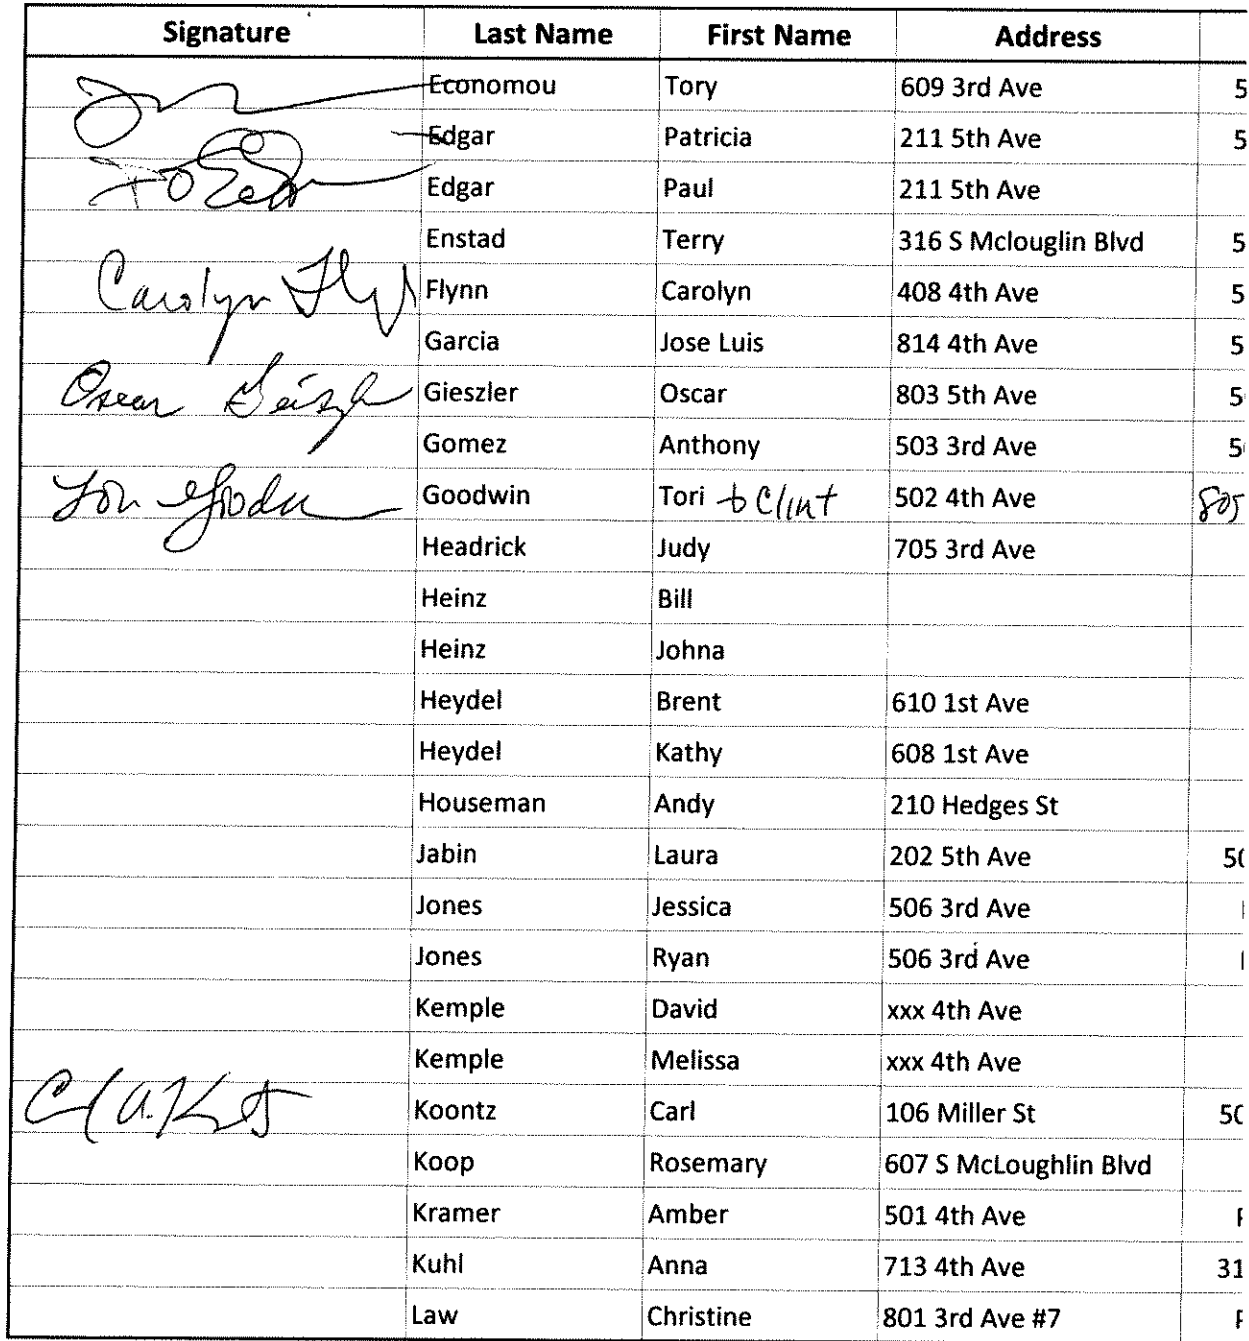 Signature Last Name First Name Address
Economou Tory 609 3rd Ave 5
Edgar Patricia 211 5th Ave 5
Edgar Paul 211 5th Ave
Enstad Terry 316 S Mclouglin Blvd 5
Carolyn Flynn Carolyn 408 4th Ave 5
Garcia Jose Luis 814 4th Ave 5
Oscar Gieszler Oscar 803 5th Ave 5
Gomez Anthony 503 3rd Ave 5
Goodwin Tori Clint 502 4th Ave 805
Headrick Judy 705 3rd Ave
Heinz Bill
Heinz Johna
Heydel Brent 610 1st Ave
Heydel Kathy 608 1st Ave
Houseman Andy 210 Hedges St
Jabin Laura 202 5th Ave 50
Jones Jessica 506 3rd Ave
Jones Ryan 506 3rd Ave
Kemple David xxx 4th Ave
Kemple Melissa xxx 4th Ave
Koontz Carl 106 Miller St 50
Koop Rosemary 607 S McLoughlin Blvd
Kramer Amber 501 4th Ave
Kuhl Anna 713 4th Ave 31
Law Christine 801 3rd Ave #7